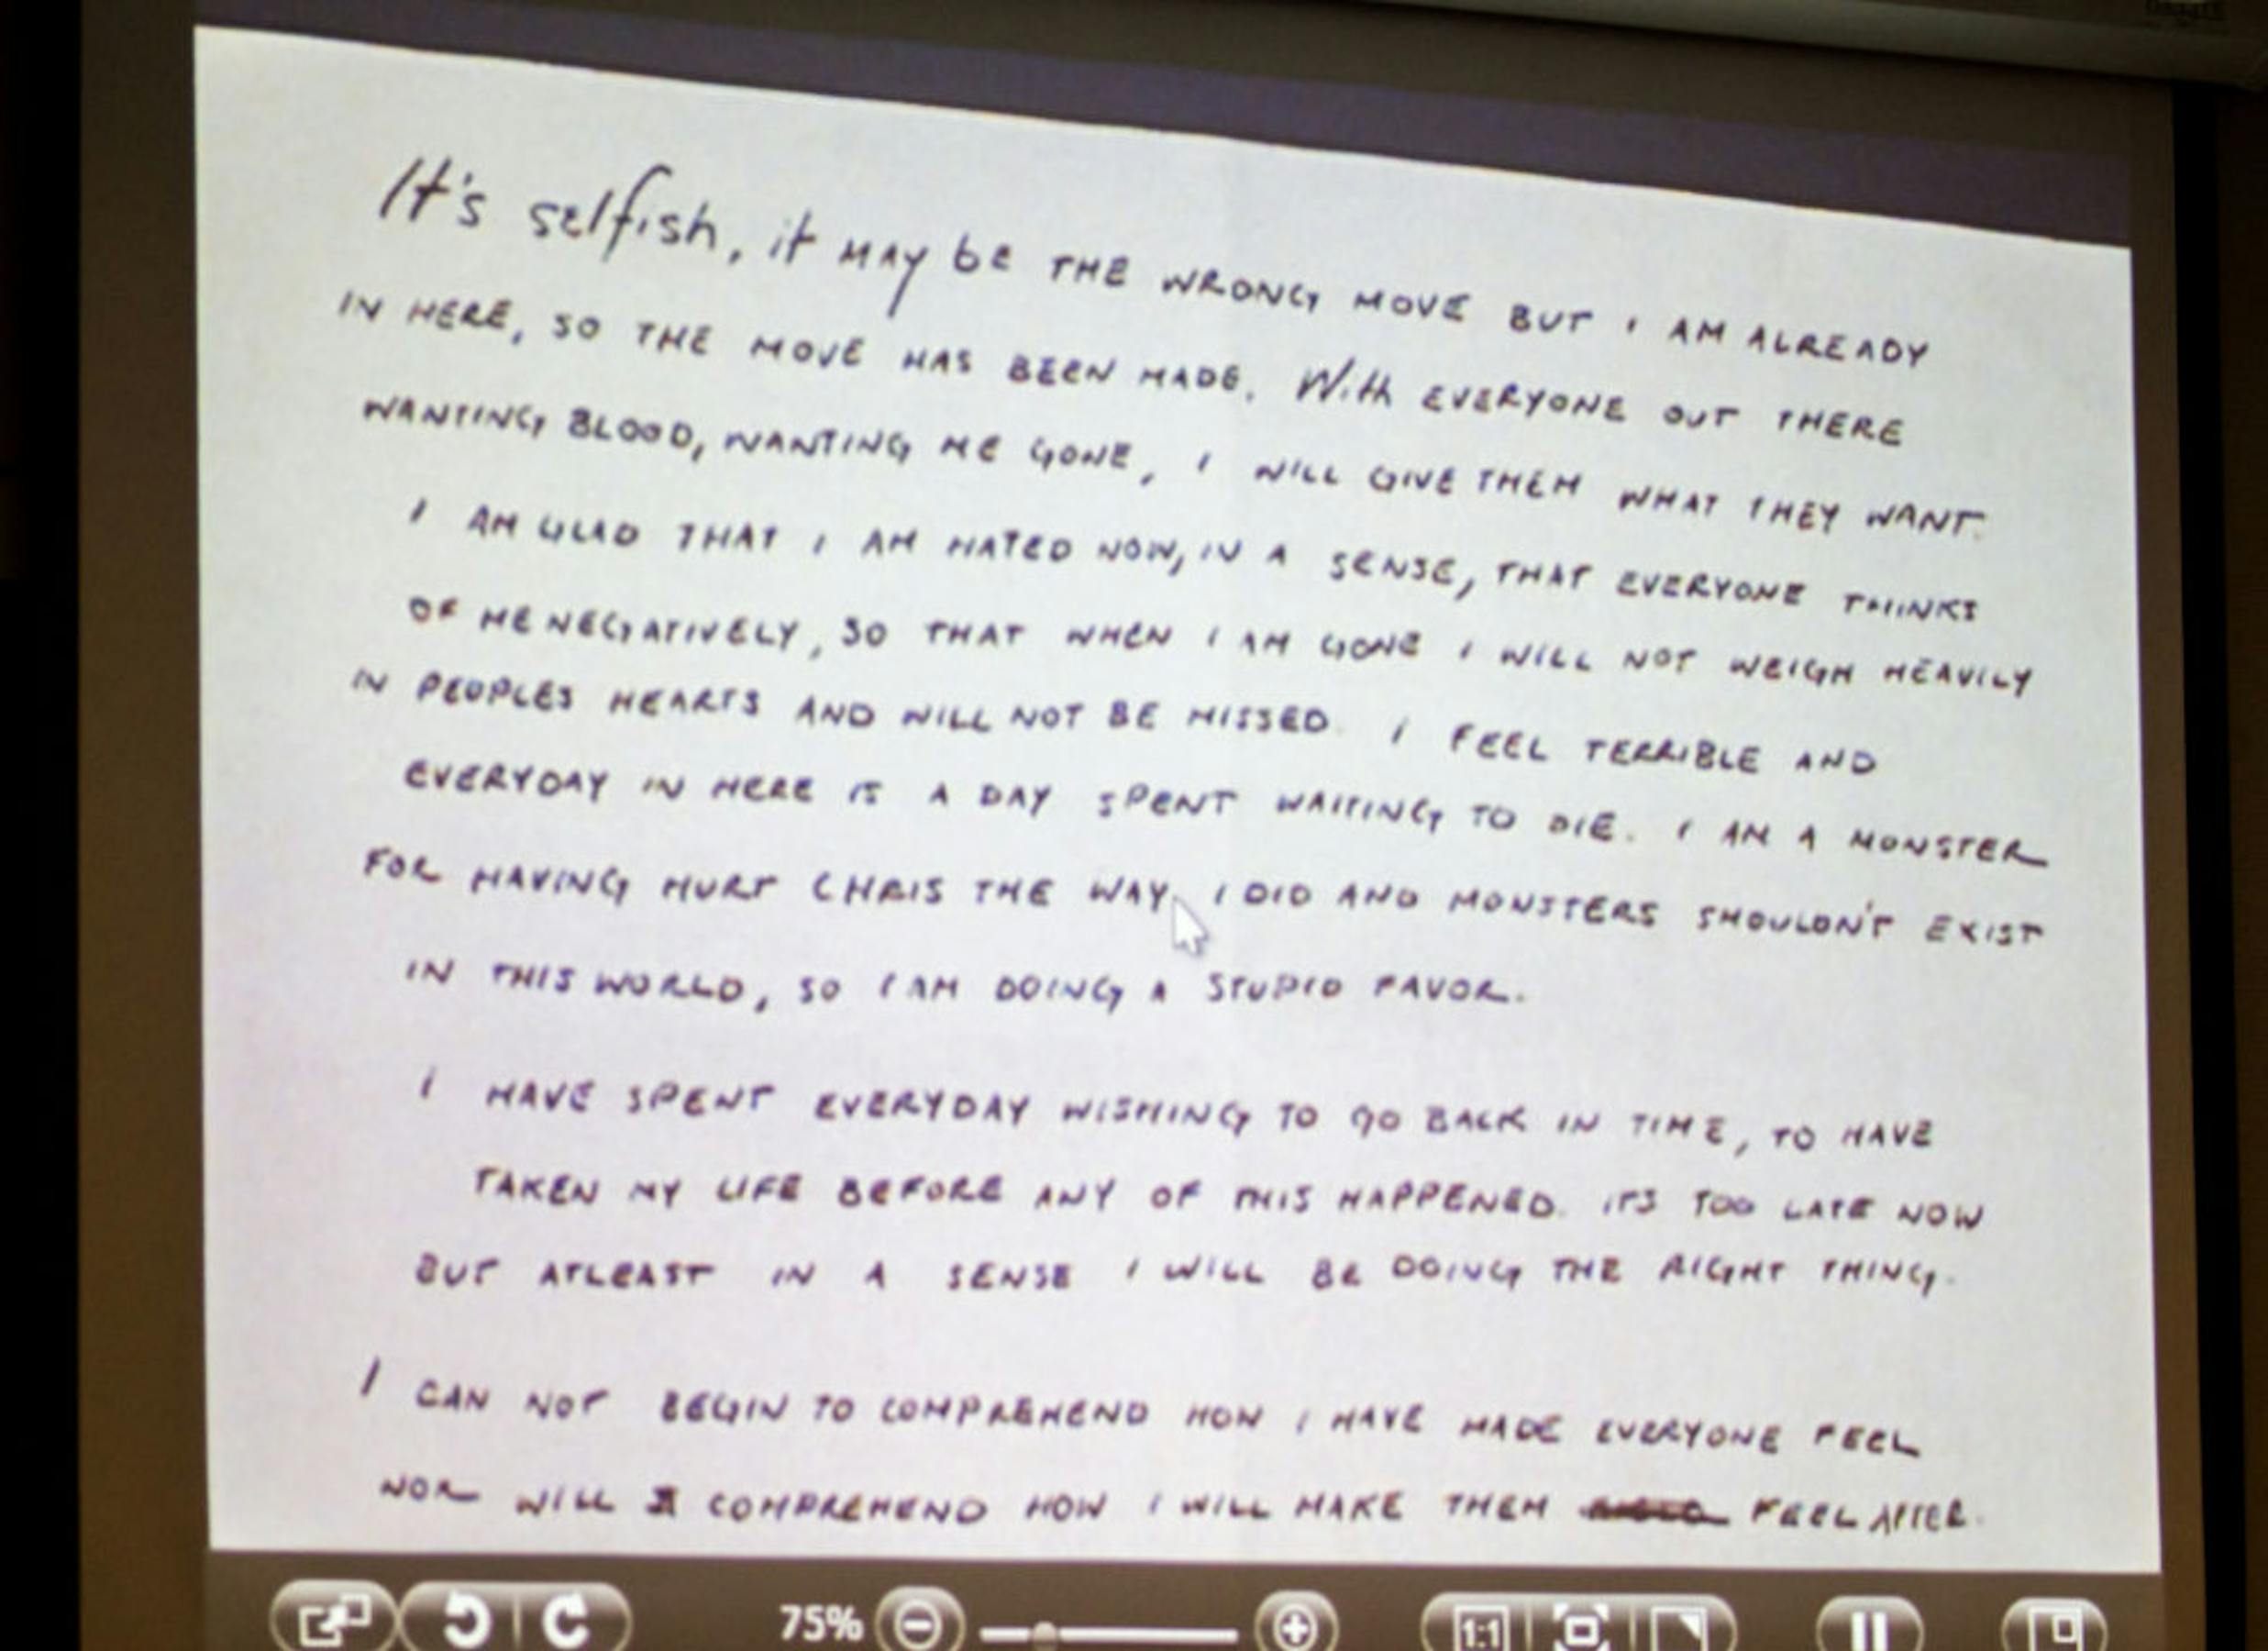 It's selfish, it MAY be THE WRONG MOVE BUT I AM ALREADY
IN HERE, SO THE MOVE HAS BEEN MADE. With EVERYONE OUT THERE
WANTING BLOOD, WANTING ME GONE, I WILL GIVE THEM WHAT THEY WANT.
I AM GLAD THAT I AM HATED NOW, IN A SENSE, THAT EVERYONE THINKS
OF ME NEGATIVELY, SO THAT WHEN I AM GONE I WILL NOT WEIGH HEAVILY
IN PEOPLES HEARTS AND WILL NOT BE MISSED. I FEEL TERRIBLE AND
EVERYDAY IN HERE IS A DAY SPENT WAITING TO DIE. I AM A MONSTER
FOR HAVING HURT CHRIS THE WAY I DID AND MONSTERS SHOULDN'T EXIST
IN THIS WORLD, SO I AM DOING A STUPID FAVOR.
I HAVE SPENT EVERYDAY WISHING TO GO BACK IN TIME, TO HAVE
TAKEN MY LIFE BEFORE ANY OF THIS HAPPENED. ITS TOO LATE NOW
BUT ATLEAST IN A SENSE I WILL BE DOING THE RIGHT THING.
I CAN NOT BEGIN TO COMPREHEND HOW I HAVE MADE EVERYONE FEEL
NOR WILL I COMPREHEND HOW I WILL MAKE THEM FEEL AFTER.
75%
1:1